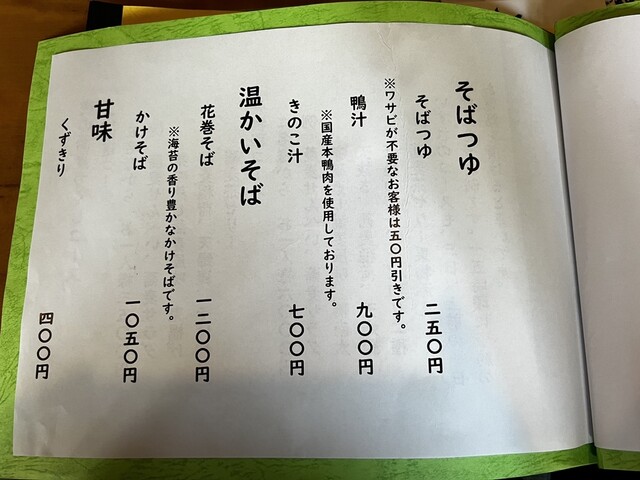 そばつゆ
そばつゆ 二五〇円
※ワサビが不要なお客様は五〇円引きです。
鴨汁 九〇〇円
※国産本鴨肉を使用しております。
きのこ汁 七〇〇円
温かいそば
花巻そば 一二〇〇円
※海苔の香り豊かなかけそばです。
かけそば 一〇五〇円
甘味
くずきり 四〇〇円